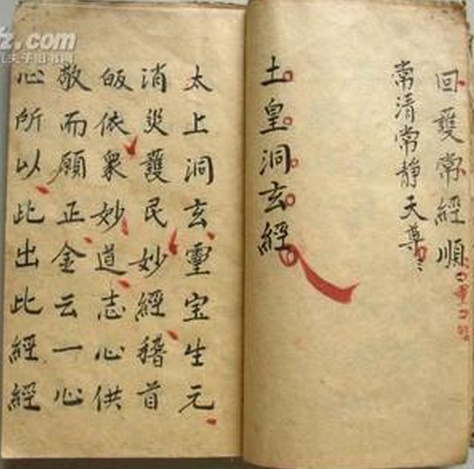 回護常經順
常清常静天尊々
土皇洞玄經
太上洞玄靈宝生元
消災護民妙經稽首
皈依衆妙道志心供
敬而願正金云一心
心所以此出此經經
fz.com
夫子旧书网